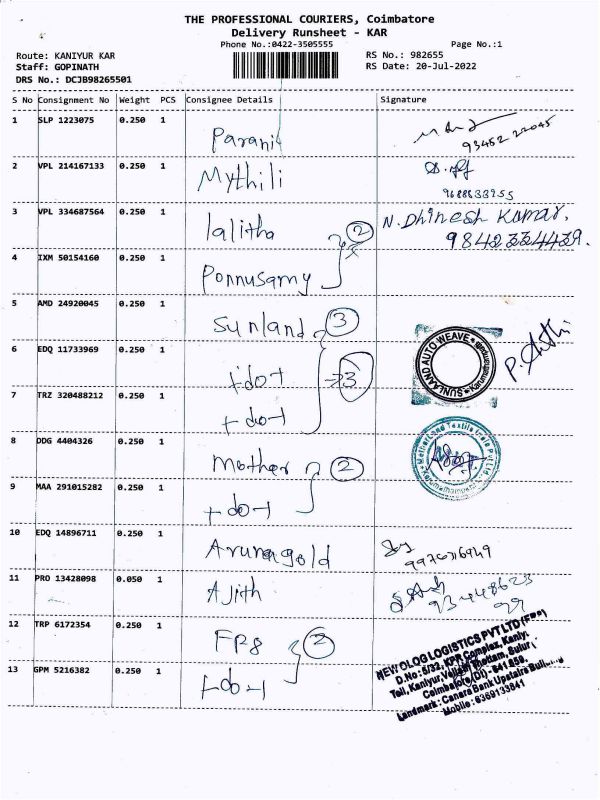 THE PROFESSIONAL COURIERS, Coimbatore
Delivery Runsheet - KAR
Phone No.:0422-3505555 Page No.:1
Route: KANIYUR KAR RS No.: 982655
Staff: GOPINATH RS Date: 20-Jul-2022
DRS No.: DCJB98265501
S No Consignment No Weight PCS Consignee Details Signature
1 SLP 1223075 0.250 1 Parani
2 VPL 214167133 0.250 1 Mythili
9688633955
3 VPL 334687564 0.250 1 lalitha N. Dhinesh Kumar,
2 9842334439.
4 IXM 50154160 0.250 1 Ponnusamy
5 AMD 24920045 0.250 1 Sunland 3
SUNLAAND AUTO WEAVE
6 EDQ 11733969 0.250 1 +do+ 3
7 TRZ 320488212 0.250 1 +do+
8 DDG 4404326 0.250 1 Mother 2
Motherland Textile India Pvt Ltd
9 MAA 291015282 0.250 1 +do+
10 EDQ 14896711 0.250 1 Arunagold
11 PRO 13428098 0.050 1 Ajith
12 TRP 6172354 0.250 1 FP8 2
13 GPM 5216382 0.250 1 +do+
NEW OLOG LOGISTICS PVT LTD
D.No: 5/32, KPR Complex,
Coimbatore (Dt) - 641 659.
Landmark: Canara Bank Upstairs
Mobile: 6369133841